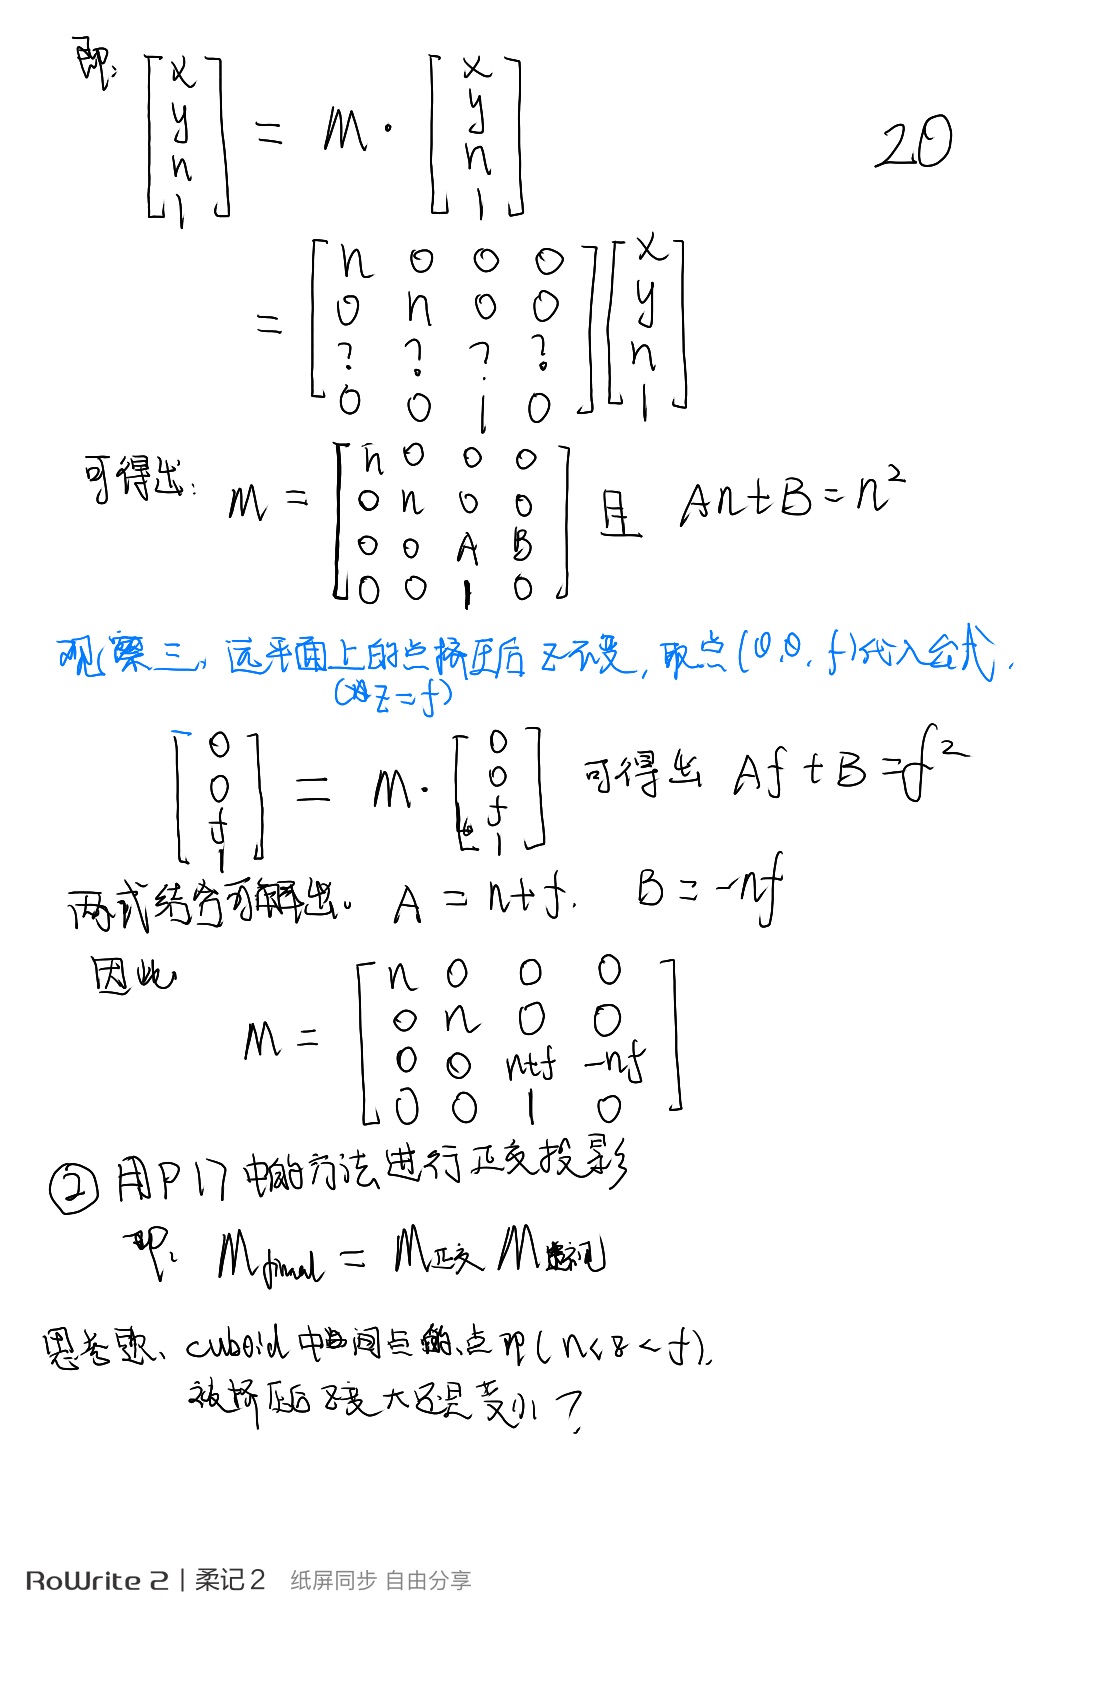 即:
[x y n 1] = M · [x y n 1]
20
= [n 0 0 0
0 n 0 0
? ? ? ?
0 0 1 0] [x y n 1]
可得出: M = [n 0 0 0
0 n 0 0
0 0 A B
0 0 1 0] 且 An+B=n²
观察三, 远平面上的点挤压后z不变, 取点(0,0,f)代入公式.
z=f)
[0 0 f 1] = M · [0 0 f 1] 可得出 Af+B=f²
两式结合可解出。 A = n+f. B = -nf
因此
M = [n 0 0 0
0 n 0 0
0 0 n+f -nf
0 0 1 0]
② 用P17中的方法进行正交投影
即: Mfinal = M正交 M透视
思考题、cuboid中间点的点即(n<z<f),
被挤压后z变大还是变小?
RoWrite 2 | 柔记2 纸屏同步 自由分享